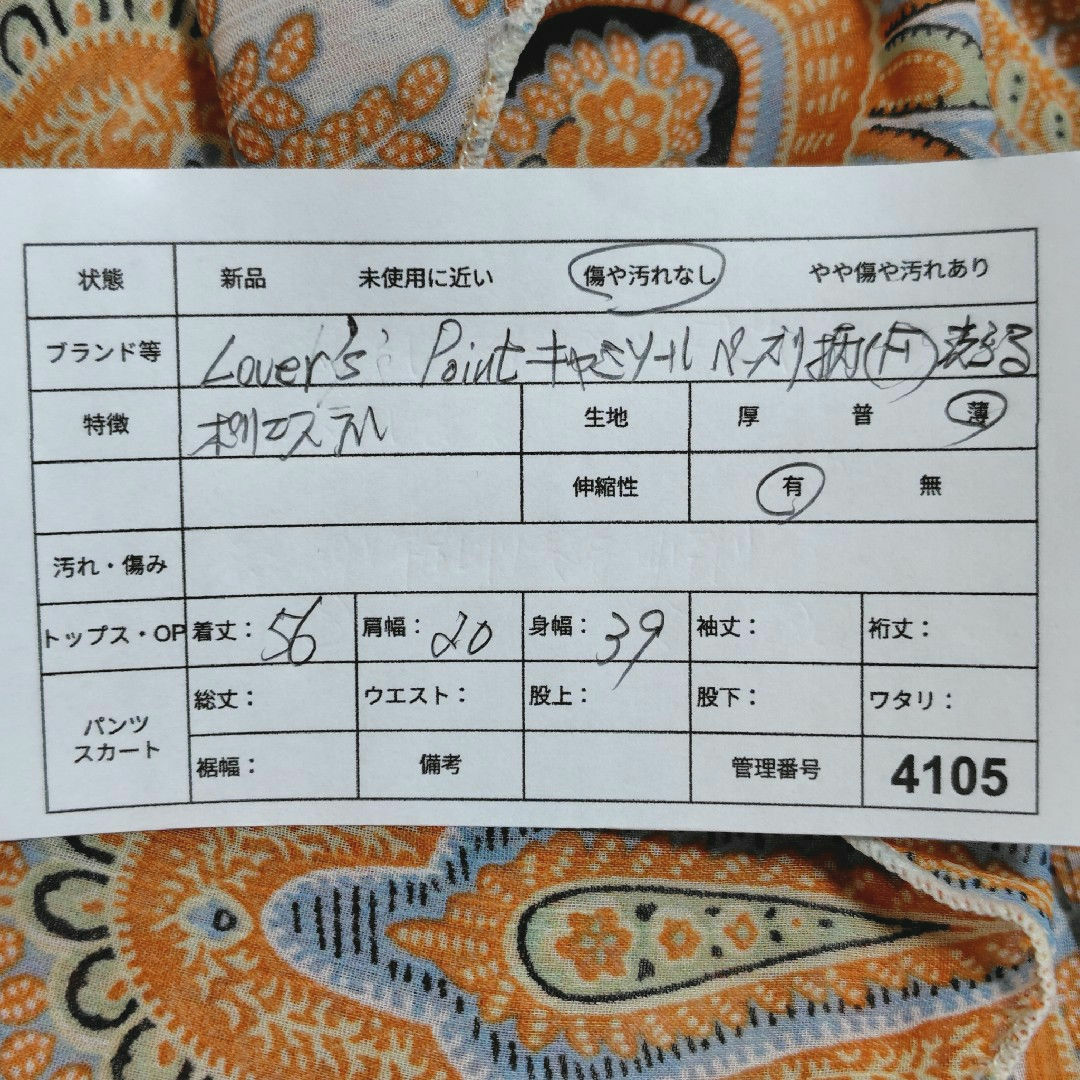 状態 新品 未使用に近い 傷や汚れなし やや傷や汚れあり
ブランド等 Lover's Point キャミソール ペーズリ柄
特徴 ポリエステル 生地 厚 普 薄
伸縮性 有 無
汚れ・傷み
トップス・OP 着丈: 56 肩幅: 20 身幅: 39 袖丈: 裄丈:
パンツ スカート 総丈: ウエスト: 股上: 股下: ワタリ:
裾幅: 備考 管理番号 4105